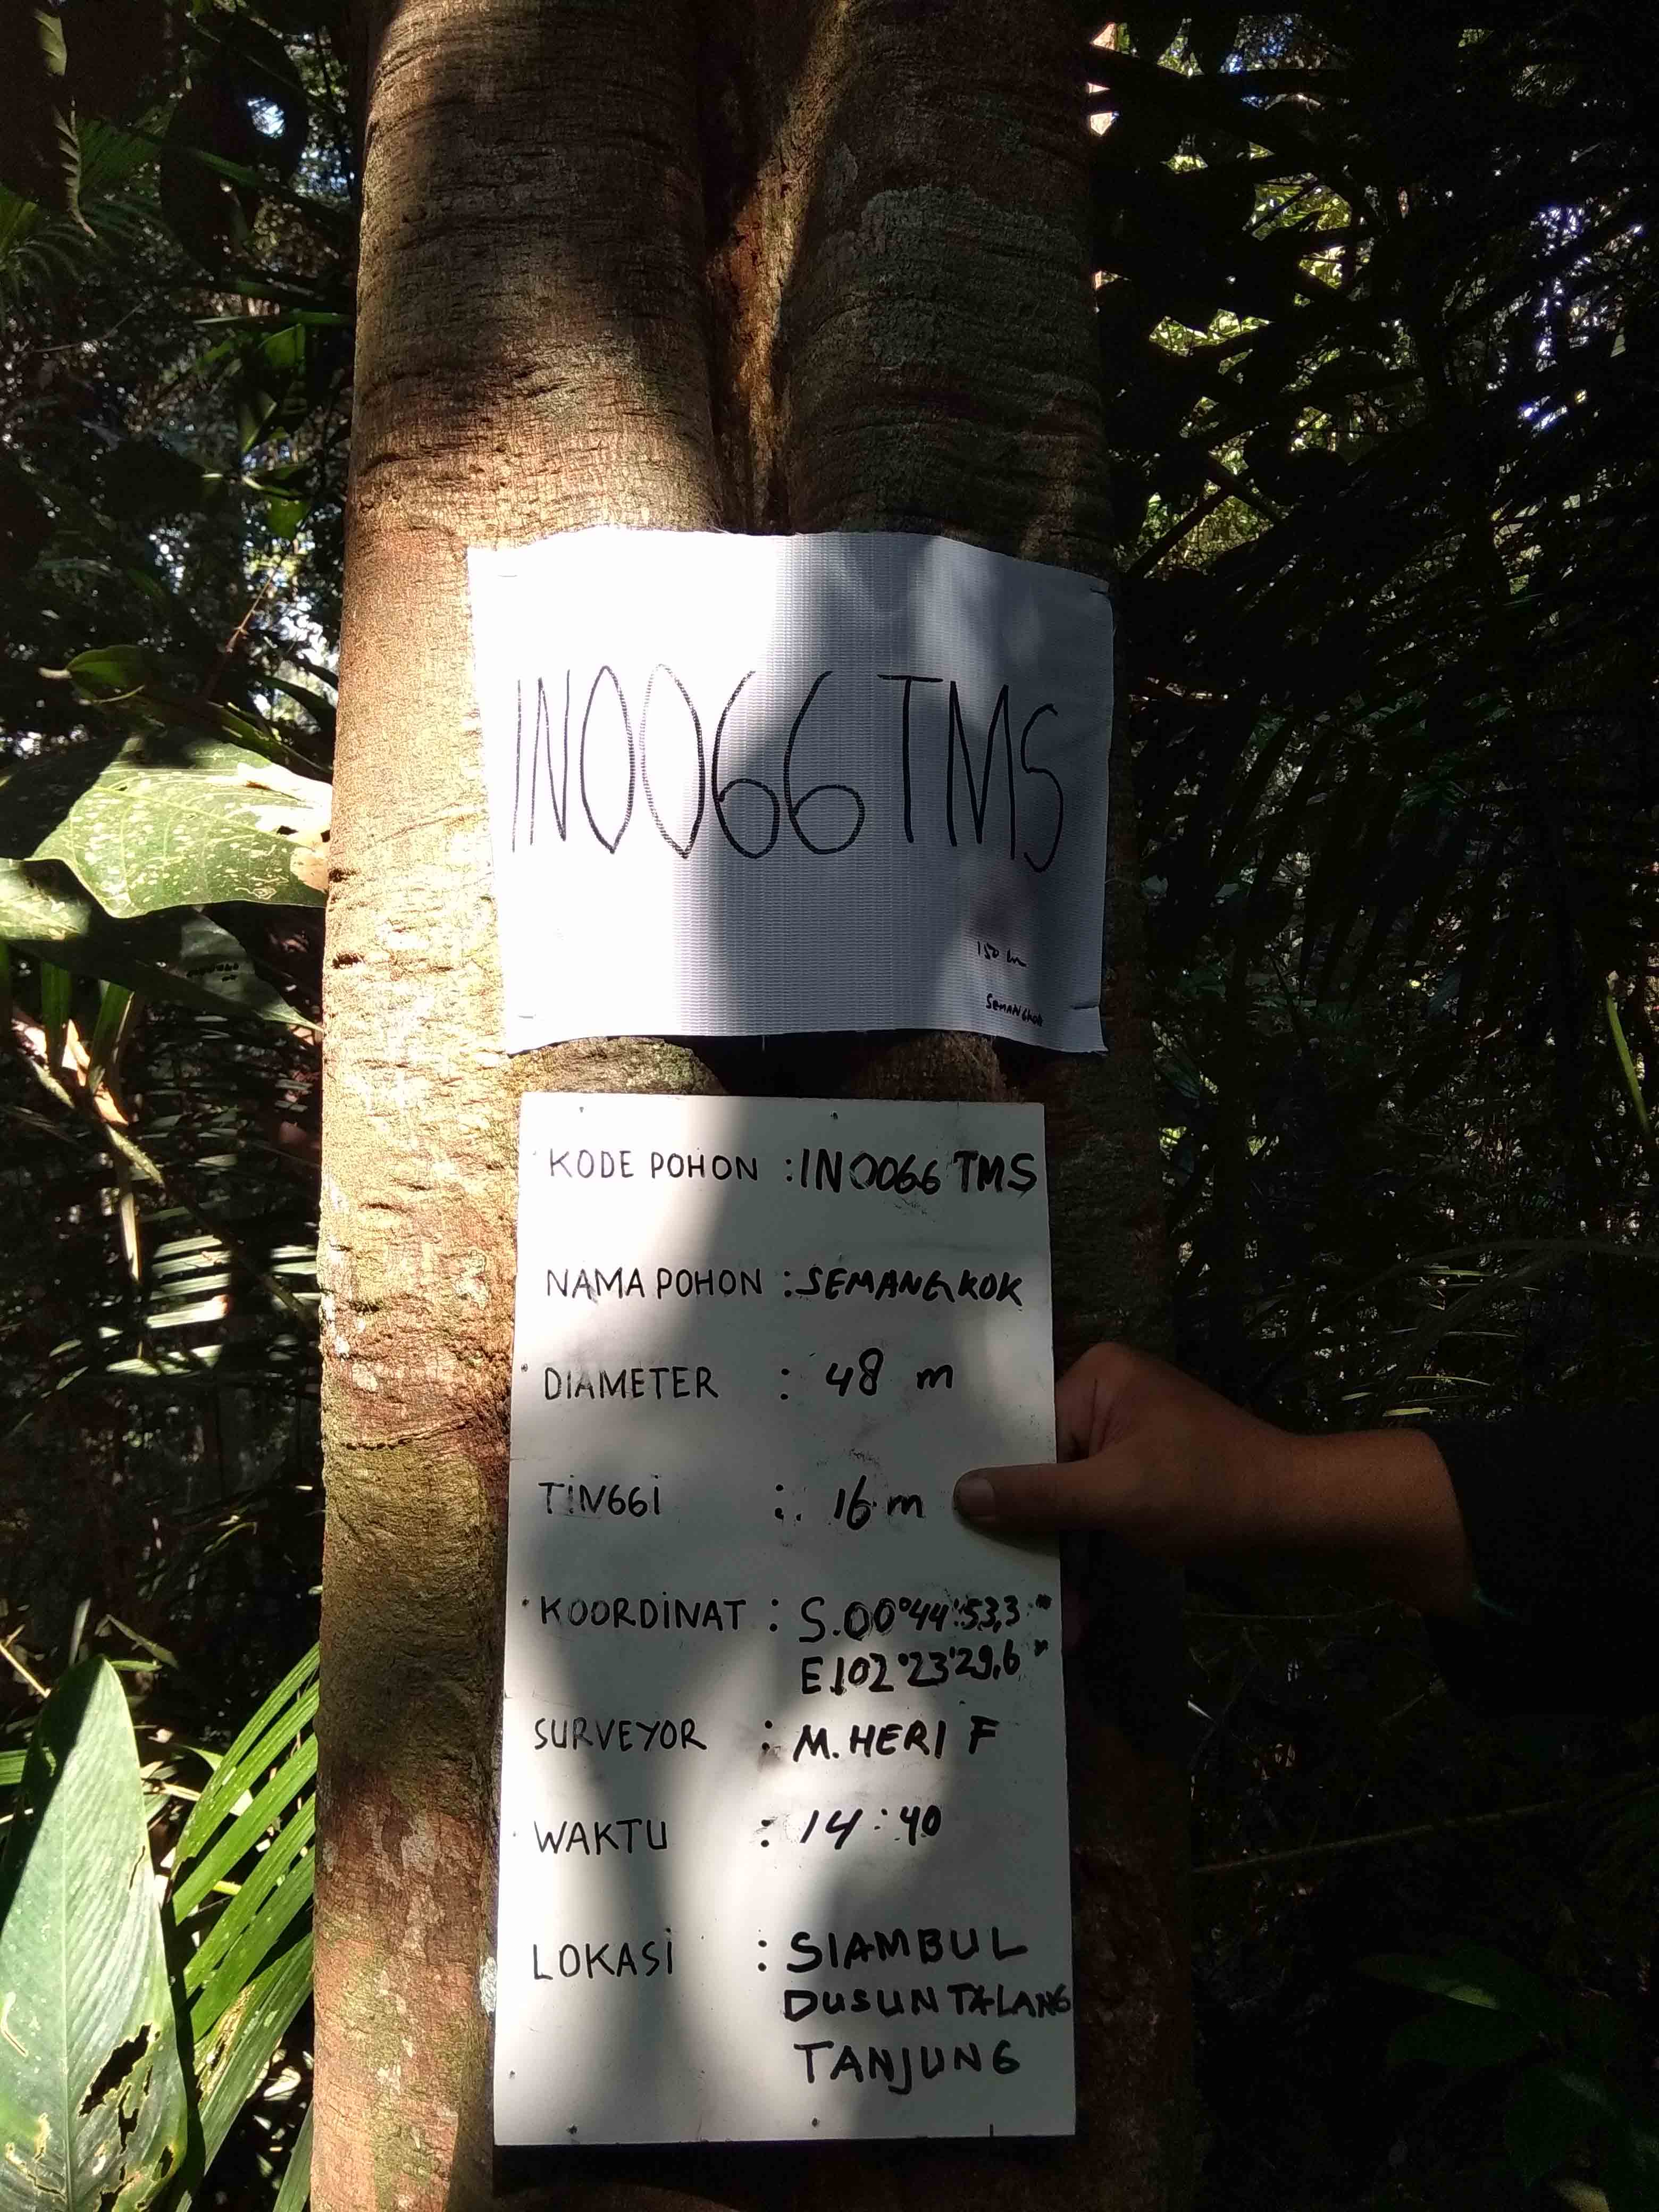 IN0066 TMS
150 m
SEMANGKOK
KODE POHON : IN0066 TMS
NAMA POHON : SEMANGKOK
DIAMETER : 48 m
TINGGI : 16 m
KOORDINAT : S.00°44'53,3"
E.102°23'29,6"
SURVEYOR : M. HERI F
WAKTU : 14:40
LOKASI : SIAMBUL
DUSUN TALANG
TANJUNG